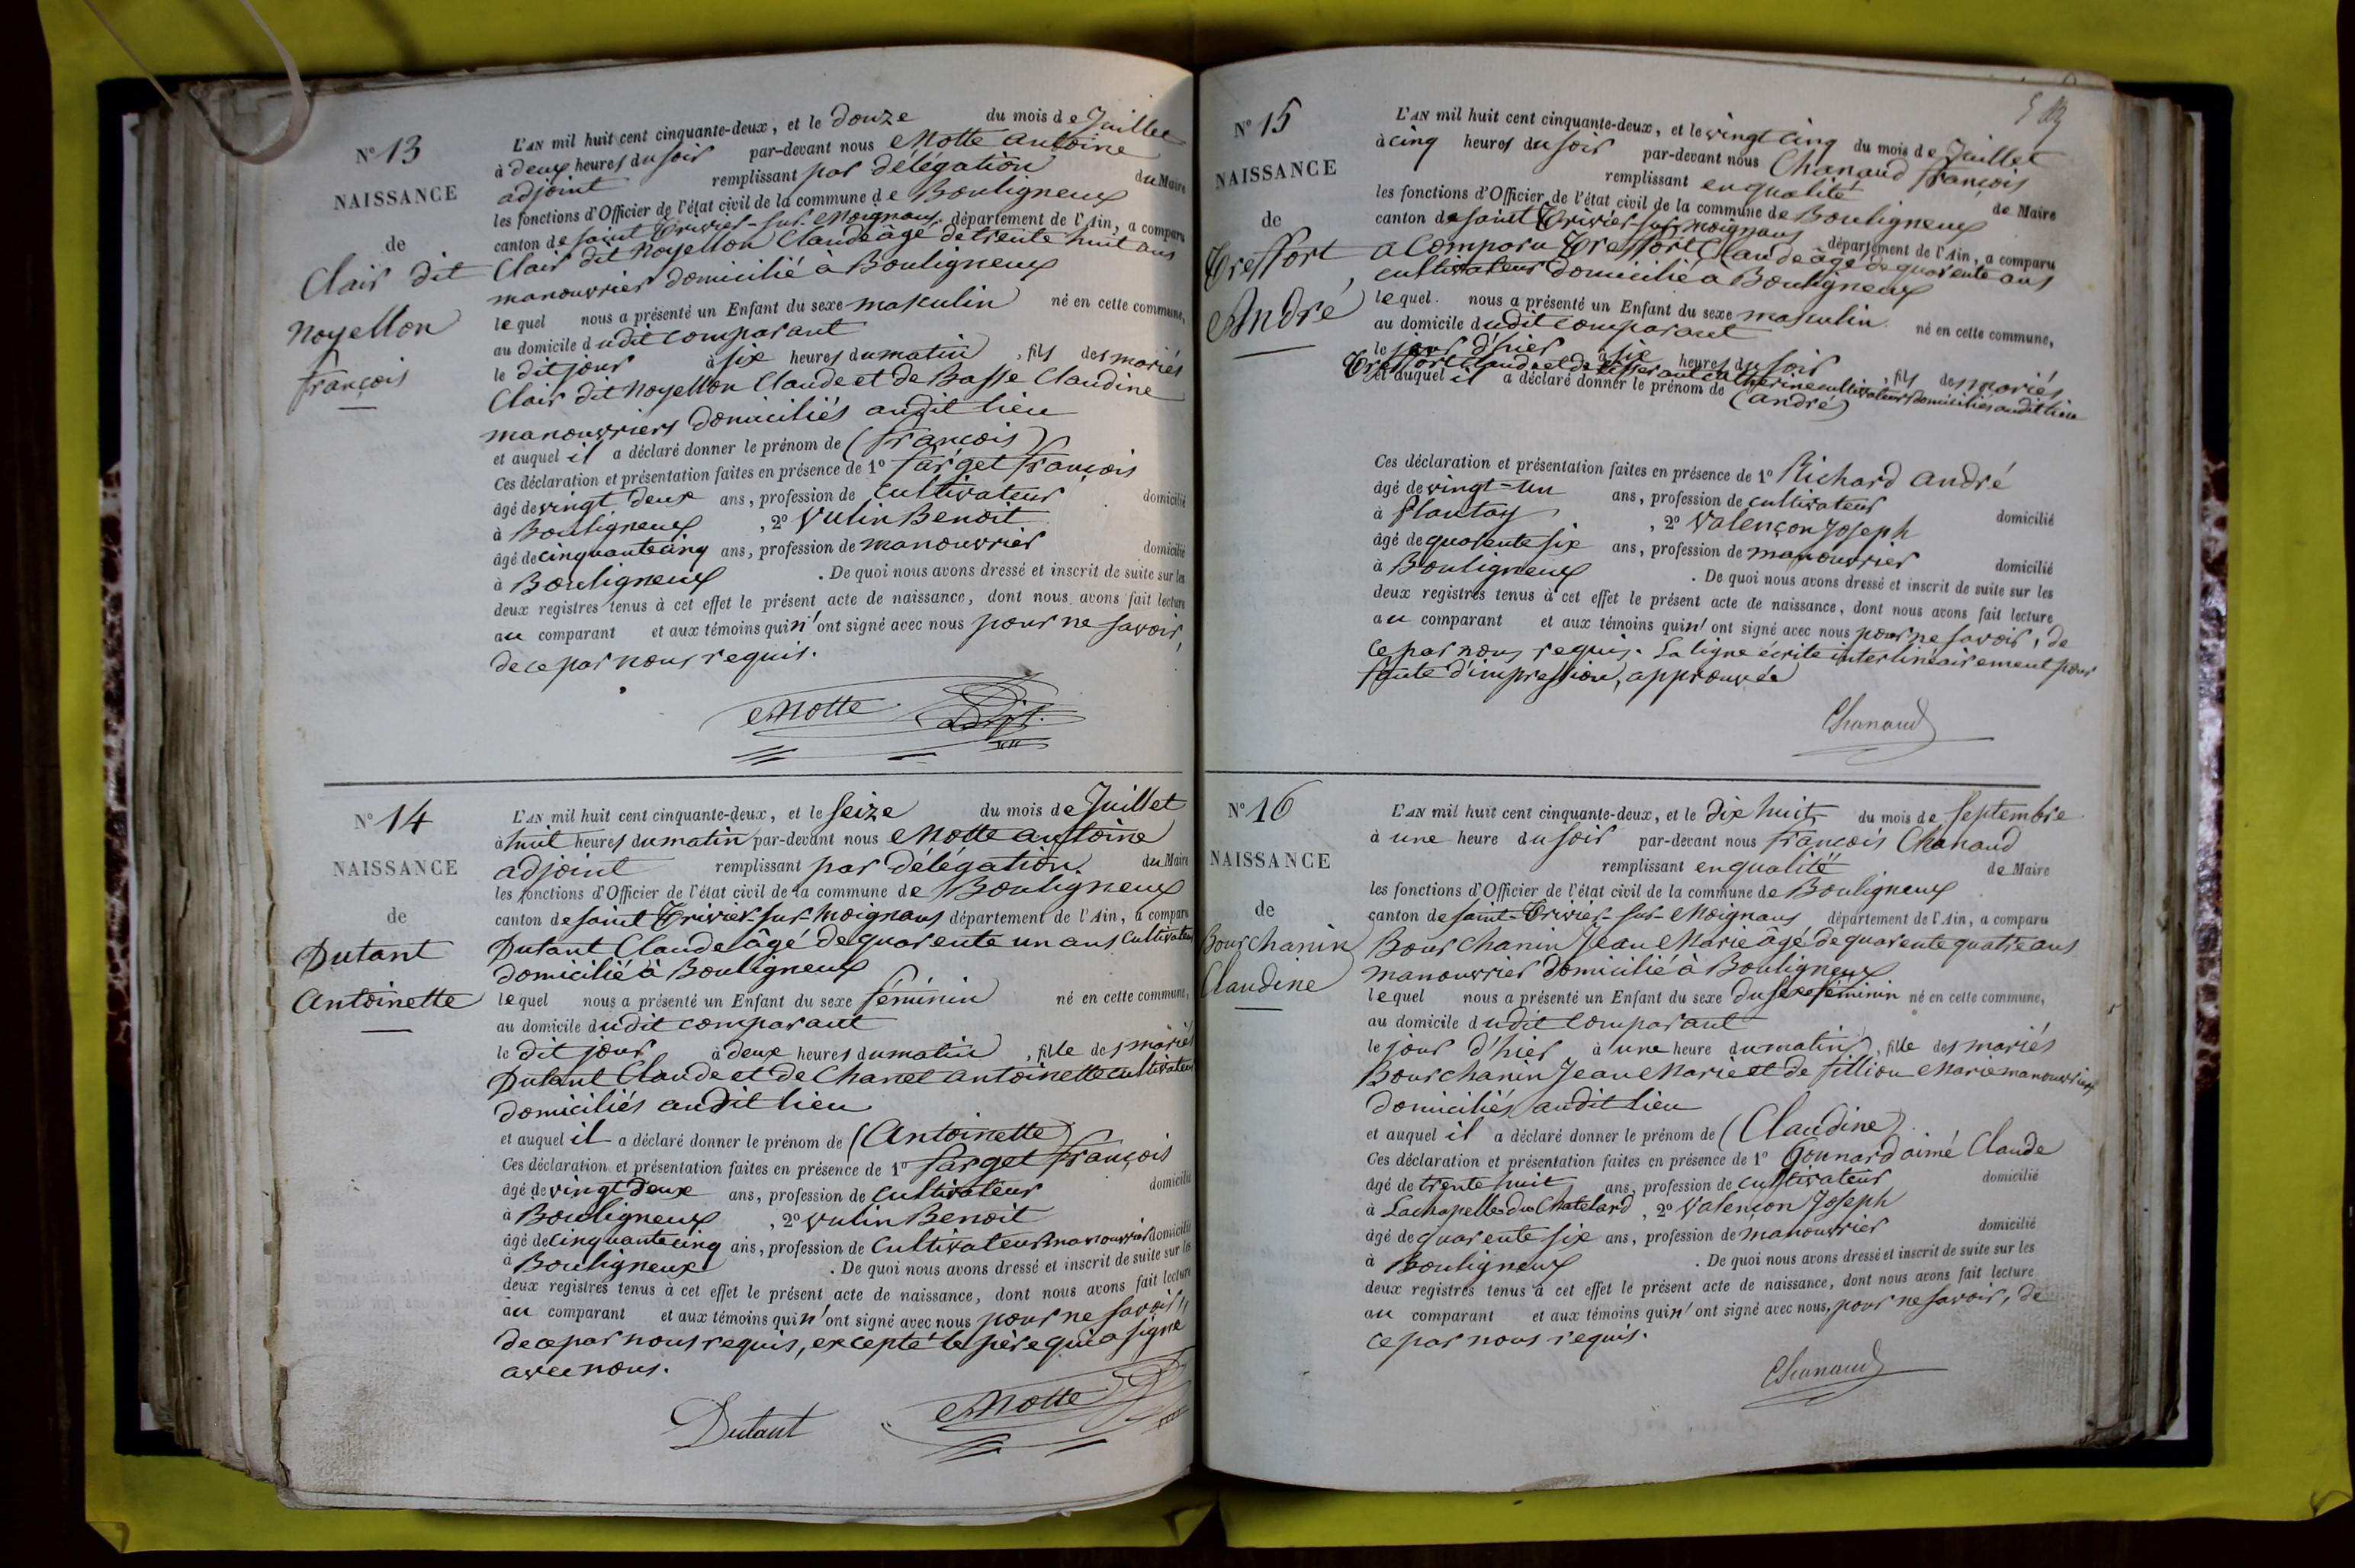 N° 13
NAISSANCE
de
Clair dit
Noyellon
françois
L'AN mil huit cent cinquante-deux, et le douze du mois de Juillet
à deux heures du soir par-devant nous Motte antoine
adjoint remplissant par délégation du Maire
les fonctions d'Officier de l'état civil de la commune de Bouligneux
canton de saint Trivier-sur-Moignans, département de l'Ain, a comparu
Clair dit Noyellon Claude âgé de trente huit ans
manouvrier domicilié à Bouligneux
lequel nous a présenté un Enfant du sexe masculin né en cette commune,
au domicile dudit comparant
le dit jour à six heures du matin, fils des mariés
Clair dit Noyellon Claude et de Basse Claudine
manouvriers domiciliés audit lieu
et auquel il a déclaré donner le prénom de (françois)
Ces déclaration et présentation faites en présence de 1° farget françois
âgé de vingt deux ans, profession de cultivateur domicilié
à Bouligneux, 2° Vulin Benoit
âgé de cinquante cinq ans, profession de manouvrier domicilié
à Bouligneux. De quoi nous avons dressé et inscrit de suite sur les
deux registres tenus à cet effet le présent acte de naissance, dont nous avons fait lecture
au comparant et aux témoins qui n'ont signé avec nous pour ne savoir,
de ce par nous requis.
Motte Adjt.
N° 14
NAISSANCE
de
Dutant
Antoinette
L'AN mil huit cent cinquante-deux, et le seize du mois de Juillet
à huit heures du matin par-devant nous Motte antoine
adjoint remplissant par délégation du Maire
les fonctions d'Officier de l'état civil de la commune de Bouligneux
canton de saint Trivier-sur-Moignans département de l'Ain, a comparu
Dutant Claude âgé de quarente un ans cultivateur
domicilié à Bouligneux
lequel nous a présenté un Enfant du sexe féminin né en cette commune,
au domicile dudit comparant
le dit jour à deux heures du matin, fille des mariés
Dutant Claude et de Chanel antoinette cultivateurs
domiciliés audit lieu
et auquel il a déclaré donner le prénom de (Antoinette)
Ces déclaration et présentation faites en présence de 1° farget françois
âgé de vingt deux ans, profession de cultivateur domicilié
à Bouligneux, 2° Vulin Benoit
âgé de cinquante cinq ans, profession de cultivateur manouvrier domicilié
à Bouligneux. De quoi nous avons dressé et inscrit de suite sur les
deux registres tenus à cet effet le présent acte de naissance, dont nous avons fait lecture
au comparant et aux témoins qui n'ont signé avec nous pour ne savoir,
de ce par nous requis, excepté le père qui a signé
avec nous.
Dutant Motte
N° 15
NAISSANCE
de
Treffort
André
L'AN mil huit cent cinquante-deux, et le vingt cinq du mois de Juillet
à cinq heures du soir par-devant nous Chanaud françois
remplissant en qualité de Maire
les fonctions d'Officier de l'état civil de la commune de Bouligneux
canton de saint Trivier-sur-Moignans, département de l'Ain, a comparu
a comparu Treffort Claude âgé de quarente ans
cultivateur domicilié à Bouligneux
lequel nous a présenté un Enfant du sexe masculin né en cette commune,
au domicile dudit comparant
le jour d'hier à six heures du soir, fils des mariés
Treffort Claude et de Catherine cultivateurs domiciliés audit lieu
et auquel il a déclaré donner le prénom de (andré)
Ces déclaration et présentation faites en présence de 1° Richard andré
âgé de vingt-un ans, profession de cultivateur domicilié
à Plantay, 2° Valençon Joseph
âgé de quarente six ans, profession de manouvrier domicilié
à Bouligneux. De quoi nous avons dressé et inscrit de suite sur les
deux registres tenus à cet effet le présent acte de naissance, dont nous avons fait lecture
au comparant et aux témoins qui n'ont signé avec nous pour ne savoir, de
ce par nous requis. La ligne écrite interlinéairement pour
faute d'impression, approuvée
Chanaud
N° 16
NAISSANCE
de
Bourchanin
Claudine
L'AN mil huit cent cinquante-deux, et le dix huit du mois de septembre
à une heure du soir par-devant nous françois Chanaud
remplissant en qualité de Maire
les fonctions d'Officier de l'état civil de la commune de Bouligneux
canton de saint-Trivier-sur-Moignans, département de l'Ain, a comparu
Bourchanin Jean Marie âgé de quarente quatre ans
manouvrier domicilié à Bouligneux
lequel nous a présenté un Enfant du sexe du sexe féminin né en cette commune,
au domicile dudit comparant
le jour d'hier à une heure du matin, fille des mariés
Bourchanin Jean Marie et de fillion Marie manouvriers
domiciliés audit lieu
et auquel il a déclaré donner le prénom de (Claudine)
Ces déclaration et présentation faites en présence de 1° Gonnard aimé Claude
âgé de trente huit ans, profession de cultivateur domicilié
à Lachapelle du Chatelard, 2° Valencon Joseph
âgé de quarente six ans, profession de manouvrier domicilié
à Bouligneux. De quoi nous avons dressé et inscrit de suite sur les
deux registres tenus à cet effet le présent acte de naissance, dont nous avons fait lecture
au comparant et aux témoins qui n'ont signé avec nous, pour ne savoir, de
ce par nous requis.
Chanaud